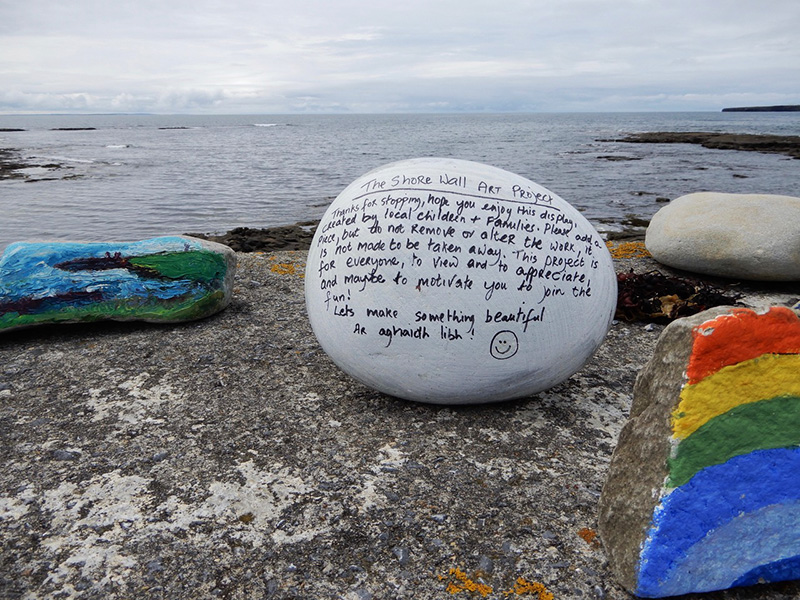 The Shore Wall Art Project
Thanks for stopping, hope you enjoy this display,
created by local children + Families. Please add a
Piece, but do not remove or alter the work, it
is not made to be taken away. This project is
for everyone, to view and to appreciate,
and maybe to motivate you to join the
fun!
Lets make something beautiful
Ar aghaidh libh!